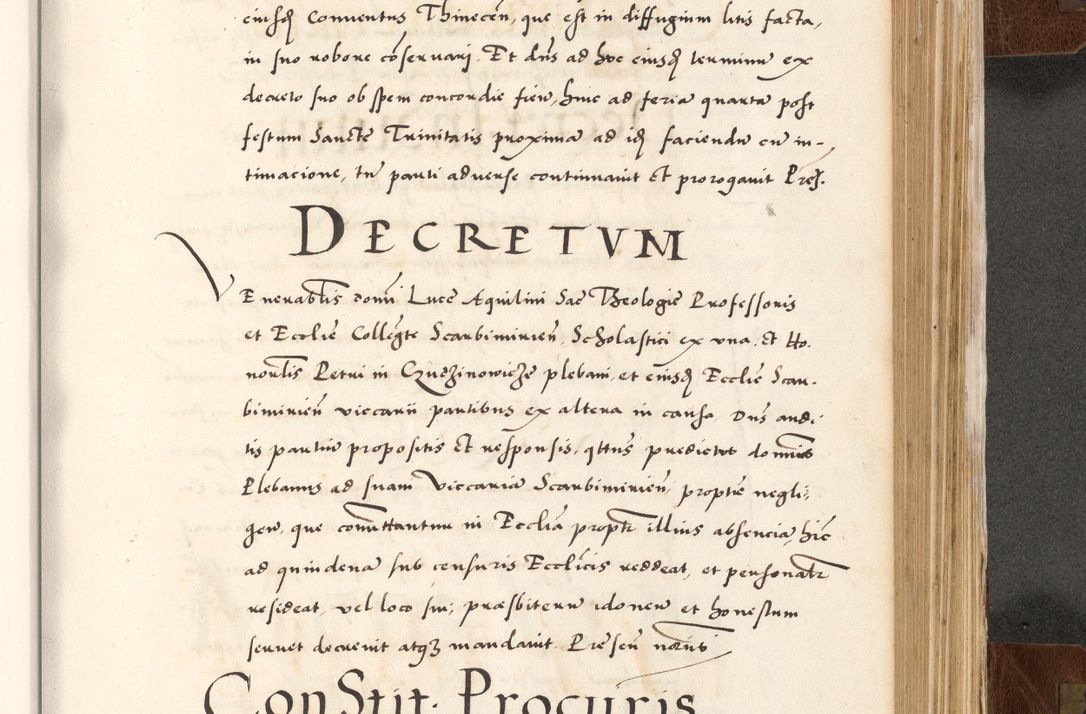 eiusdẽ Conventus Thinecen̄, que est in diffugium litis facta,
in suo robore cõservari. Et dn̄s ad hoc eiusdẽ terminũ ex
decreto suo ob spem concordie fien̄, hinc ad feriã quartã post
festum Sancte Trinitatis proximã ad idẽ faciendũ cũ in-
timacione, tũ parti adverse continuavit et prorogavit Pres.
DECRETVM
VEnerabl̃is domĩ Luce Aquilini Sac̃ Theologie Professoris
et Ecclie Collegte Scarbimirien̄. Scholastici ex una, et Ho-
norl̃is Petri in Czuszinowicze plebani, et eiusdẽ Ecclie Scar-
bimirien̄ viccarii partibus ex altera in causa Dn̄s audi-
tis partiũ propositis et responsis, qttus predictus dominus
Plebanus ad suam Viccariã Scarbimirien̄, propter negli-
gen̄, que com̃ittantur in Ecclia propter illius absenciã, hĩc
ad quindenã sub censuris Ecclicis reddeat, et personalr̃
resideat, vel loco sui, præsbiterũ idoneũ et honestum
servet decrevit atq3 mandavit. Presen̄ nõibus
ConStit. Procuris